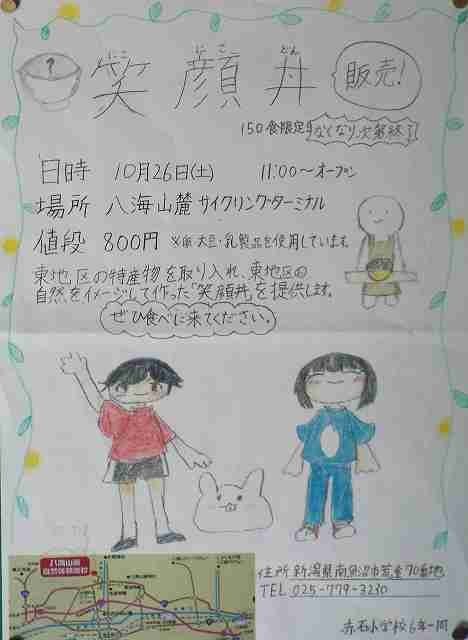 笑顔丼
にこ にこ どん
販売!
150食限定 なくなり次第終了
日時 10月26日(土) 11:00〜オープン
場所 八海山麓サイクリングターミナル
値段 800円 ※卵・大豆・乳製品を使用しています。
東地区の特産物を取り入れ、東地区の
自然をイメージして作った「笑顔丼」を提供します。
ぜひ食べに来てください。
住所 新潟県南魚沼市荒金90番地
TEL 025-779-3230
赤石小学校6年一同